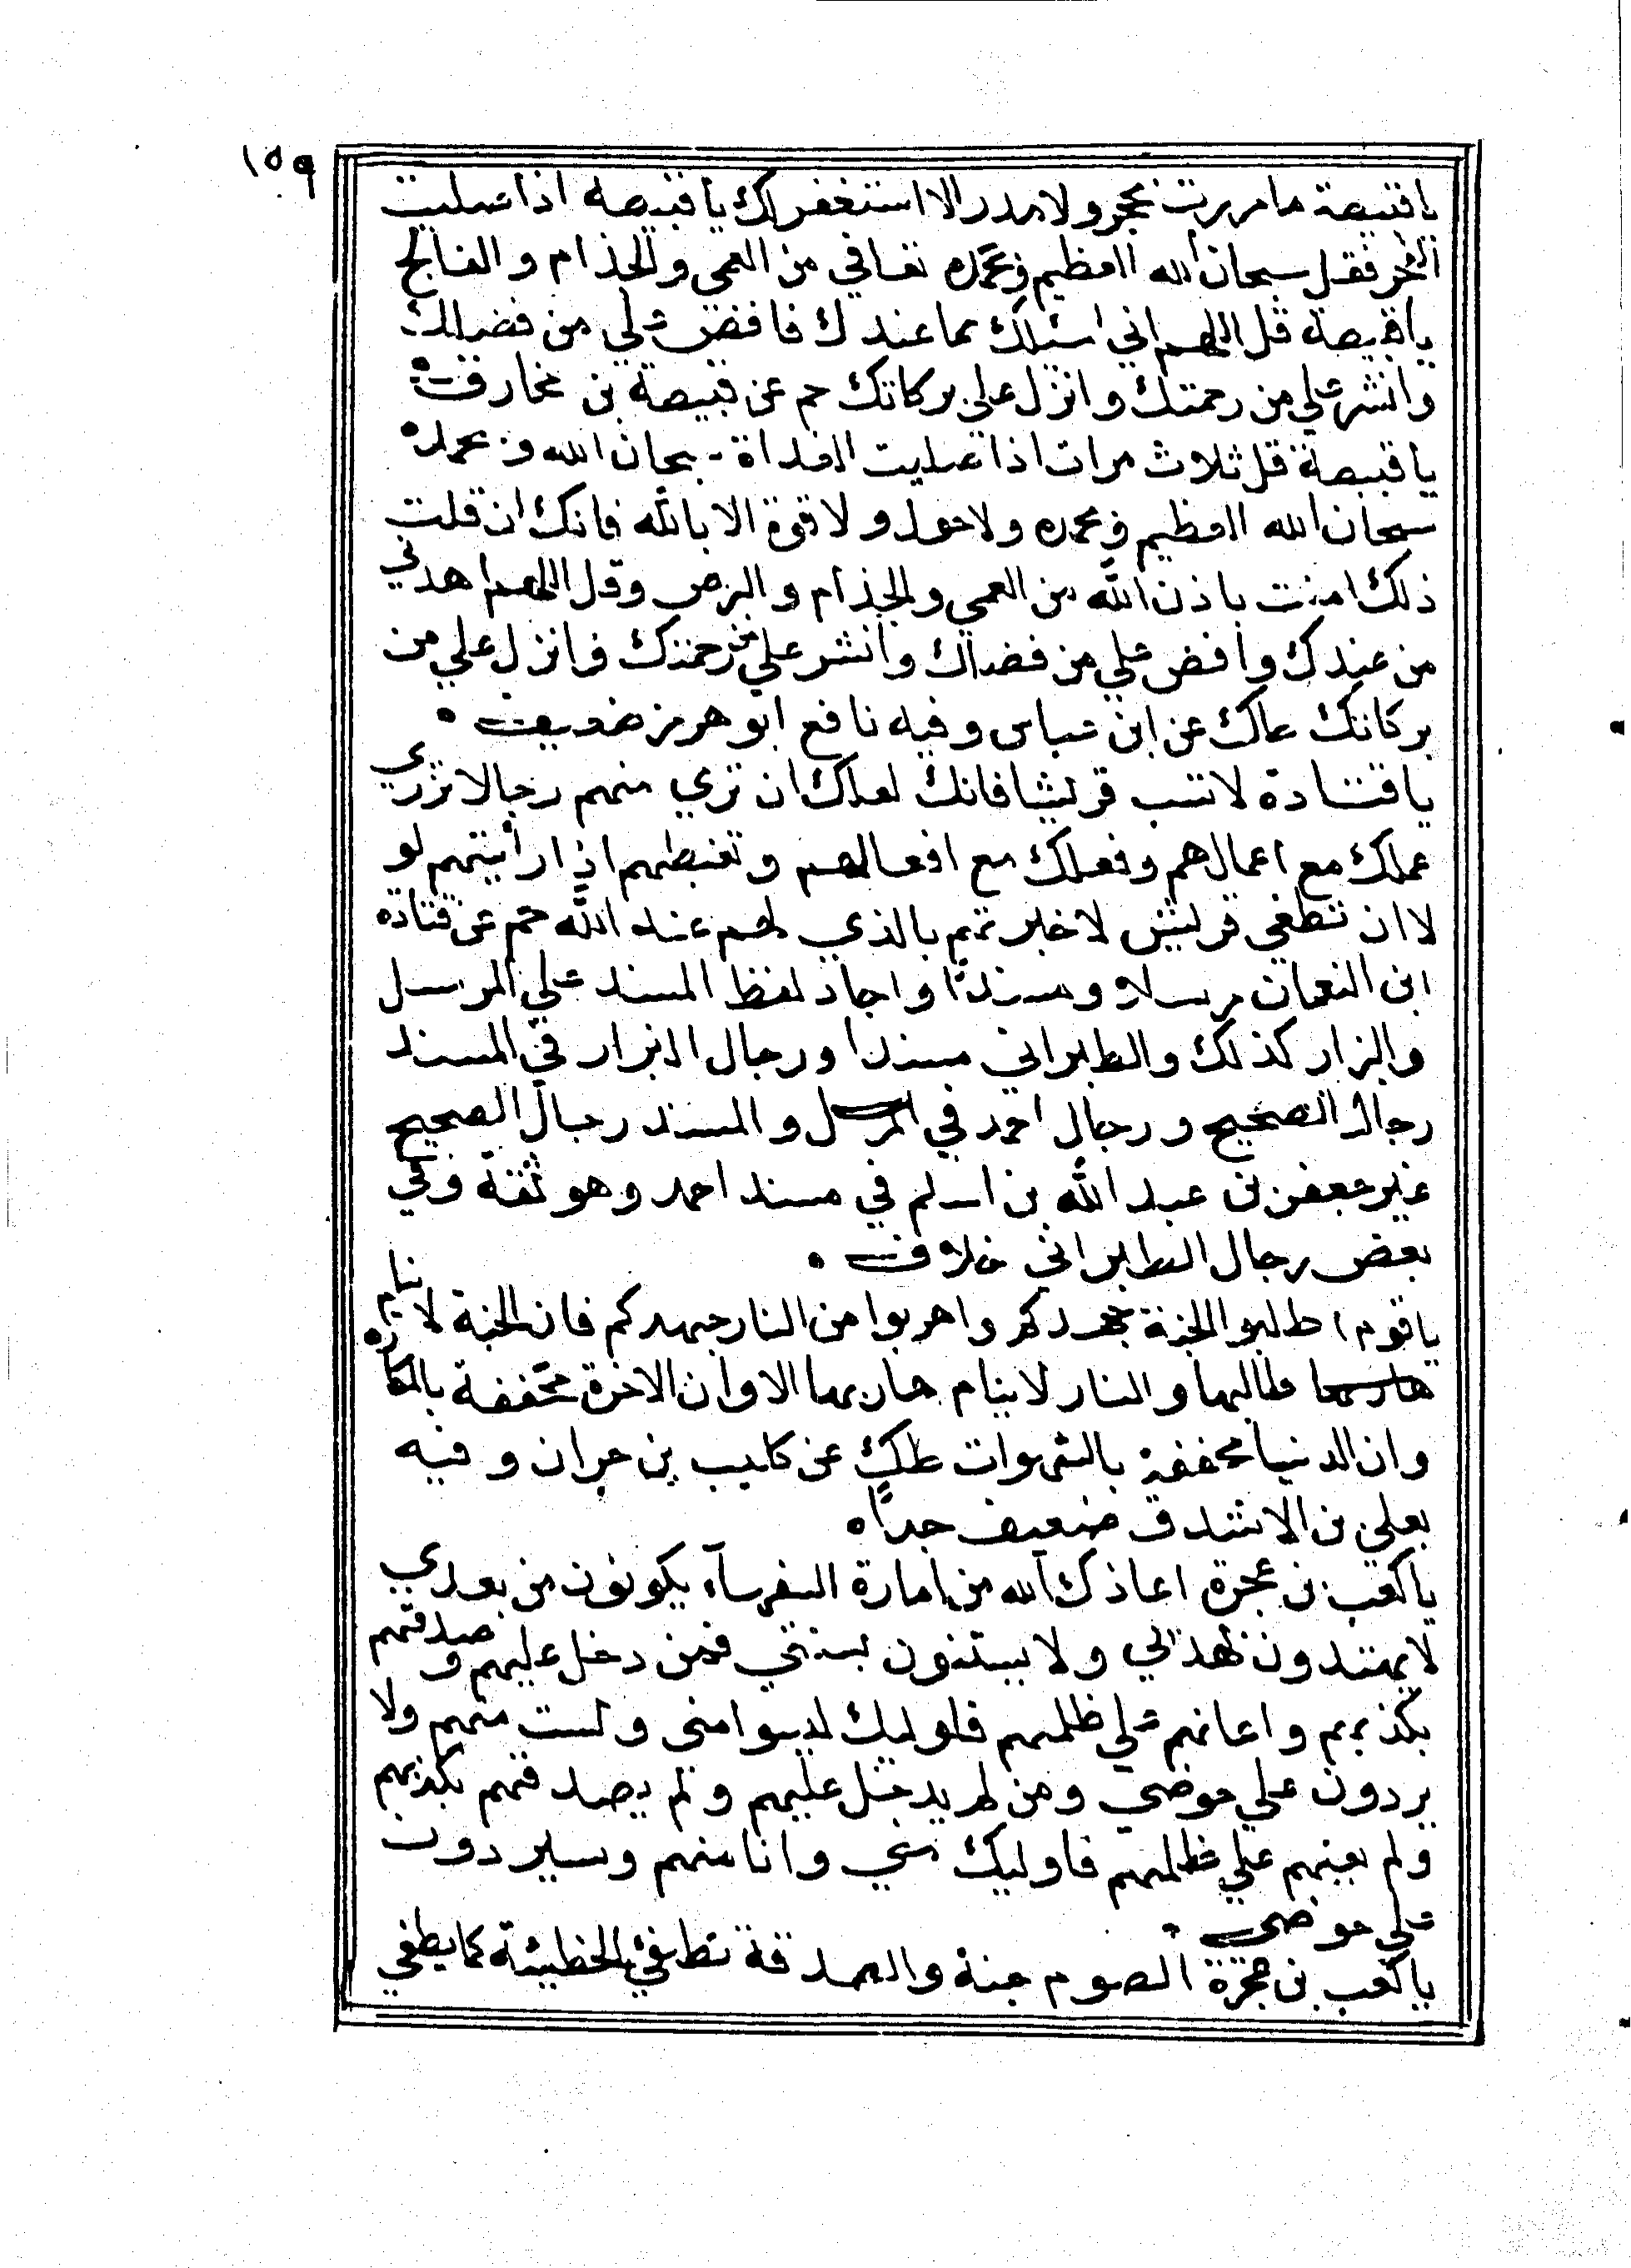 ١٥٩
يا قبيصة ما مررت بحجر ولا مدر الا استغفر لك يا قبيصه اذا صليت
الفجر فقل سبحان الله العظيم وبحمده تعافي من العمي والجذام والفالج
يا قبيصة قل اللهم اني اسئلك مما عندك فافض علي من فضلك
وانشر علي من رحمتك وانزل علي بركاتك حم عن قبيصة بن مخارق
يا قبيصة قل ثلاث مرات اذا صليت الغداة سبحان الله وبحمده
سبحان الله العظيم وبحمده ولا حول ولا قوة الا بالله فانك ان قلت
ذلك امنت باذن الله من العمي والجذام والبرص وقل اللهم اهدني
من عندك وافض علي من فضلك وانشر علي من رحمتك وانزل علي من
بركاتك عن ابن عباس وفيه نافع ابو هرمز ضعيف
يا قتادة لا تسب قريشا فانك لعلك ان تري منهم رجالا تزري
عملك مع اعمالهم وفعلك مع افعالهم وتغبطهم اذا رأيتهم لو
لا ان تطغي قريش لاخبرتهم بالذي لهم عند الله حم عن قتادة
ابن النعمان مرسلا ومسندًا واجاد لفظ المسند علي المرسل
والبزار كذلك والطبراني مسندا ورجال البزار في المسند
رجال الصحيح ورجال احمد في المرسل والمسند رجال الصحيح
غير جعفر بن عبد الله بن اسلم في مسند احمد وهو ثقة وفي
بعض رجال الطبراني خلاف
يا قوم اطلبوا الجنة جهدكم واهربوا من النار جهدكم فان الجنة لا ينام
طالبها والنار لا ينام هاربها الا وان الاخرة محففة بالمكاره
وان الدنيا محففة بالشهوات طك عن كليب بن حزن وفيه
يعلي بن الاشدق ضعيف جدًا
يا كعب بن عجرة اعاذك الله من امارة السفهاء يكونون من بعدي
لا يهتدون بهديي ولا يستنون بسنتي فمن دخل عليهم وصدقهم
بكذبهم واعانهم علي ظلمهم فاوليك ليسوا مني ولست منهم ولا
يردون علي حوضي ومن لم يدخل عليهم ولم يصدقهم بكذبهم
ولم يعينهم علي ظلمهم فاوليك مني وانا منهم وسيردون
علي حوضي
يا كعب بن عجرة الصوم جنة والصدقة تطفئ الخطيئة كما يطفي